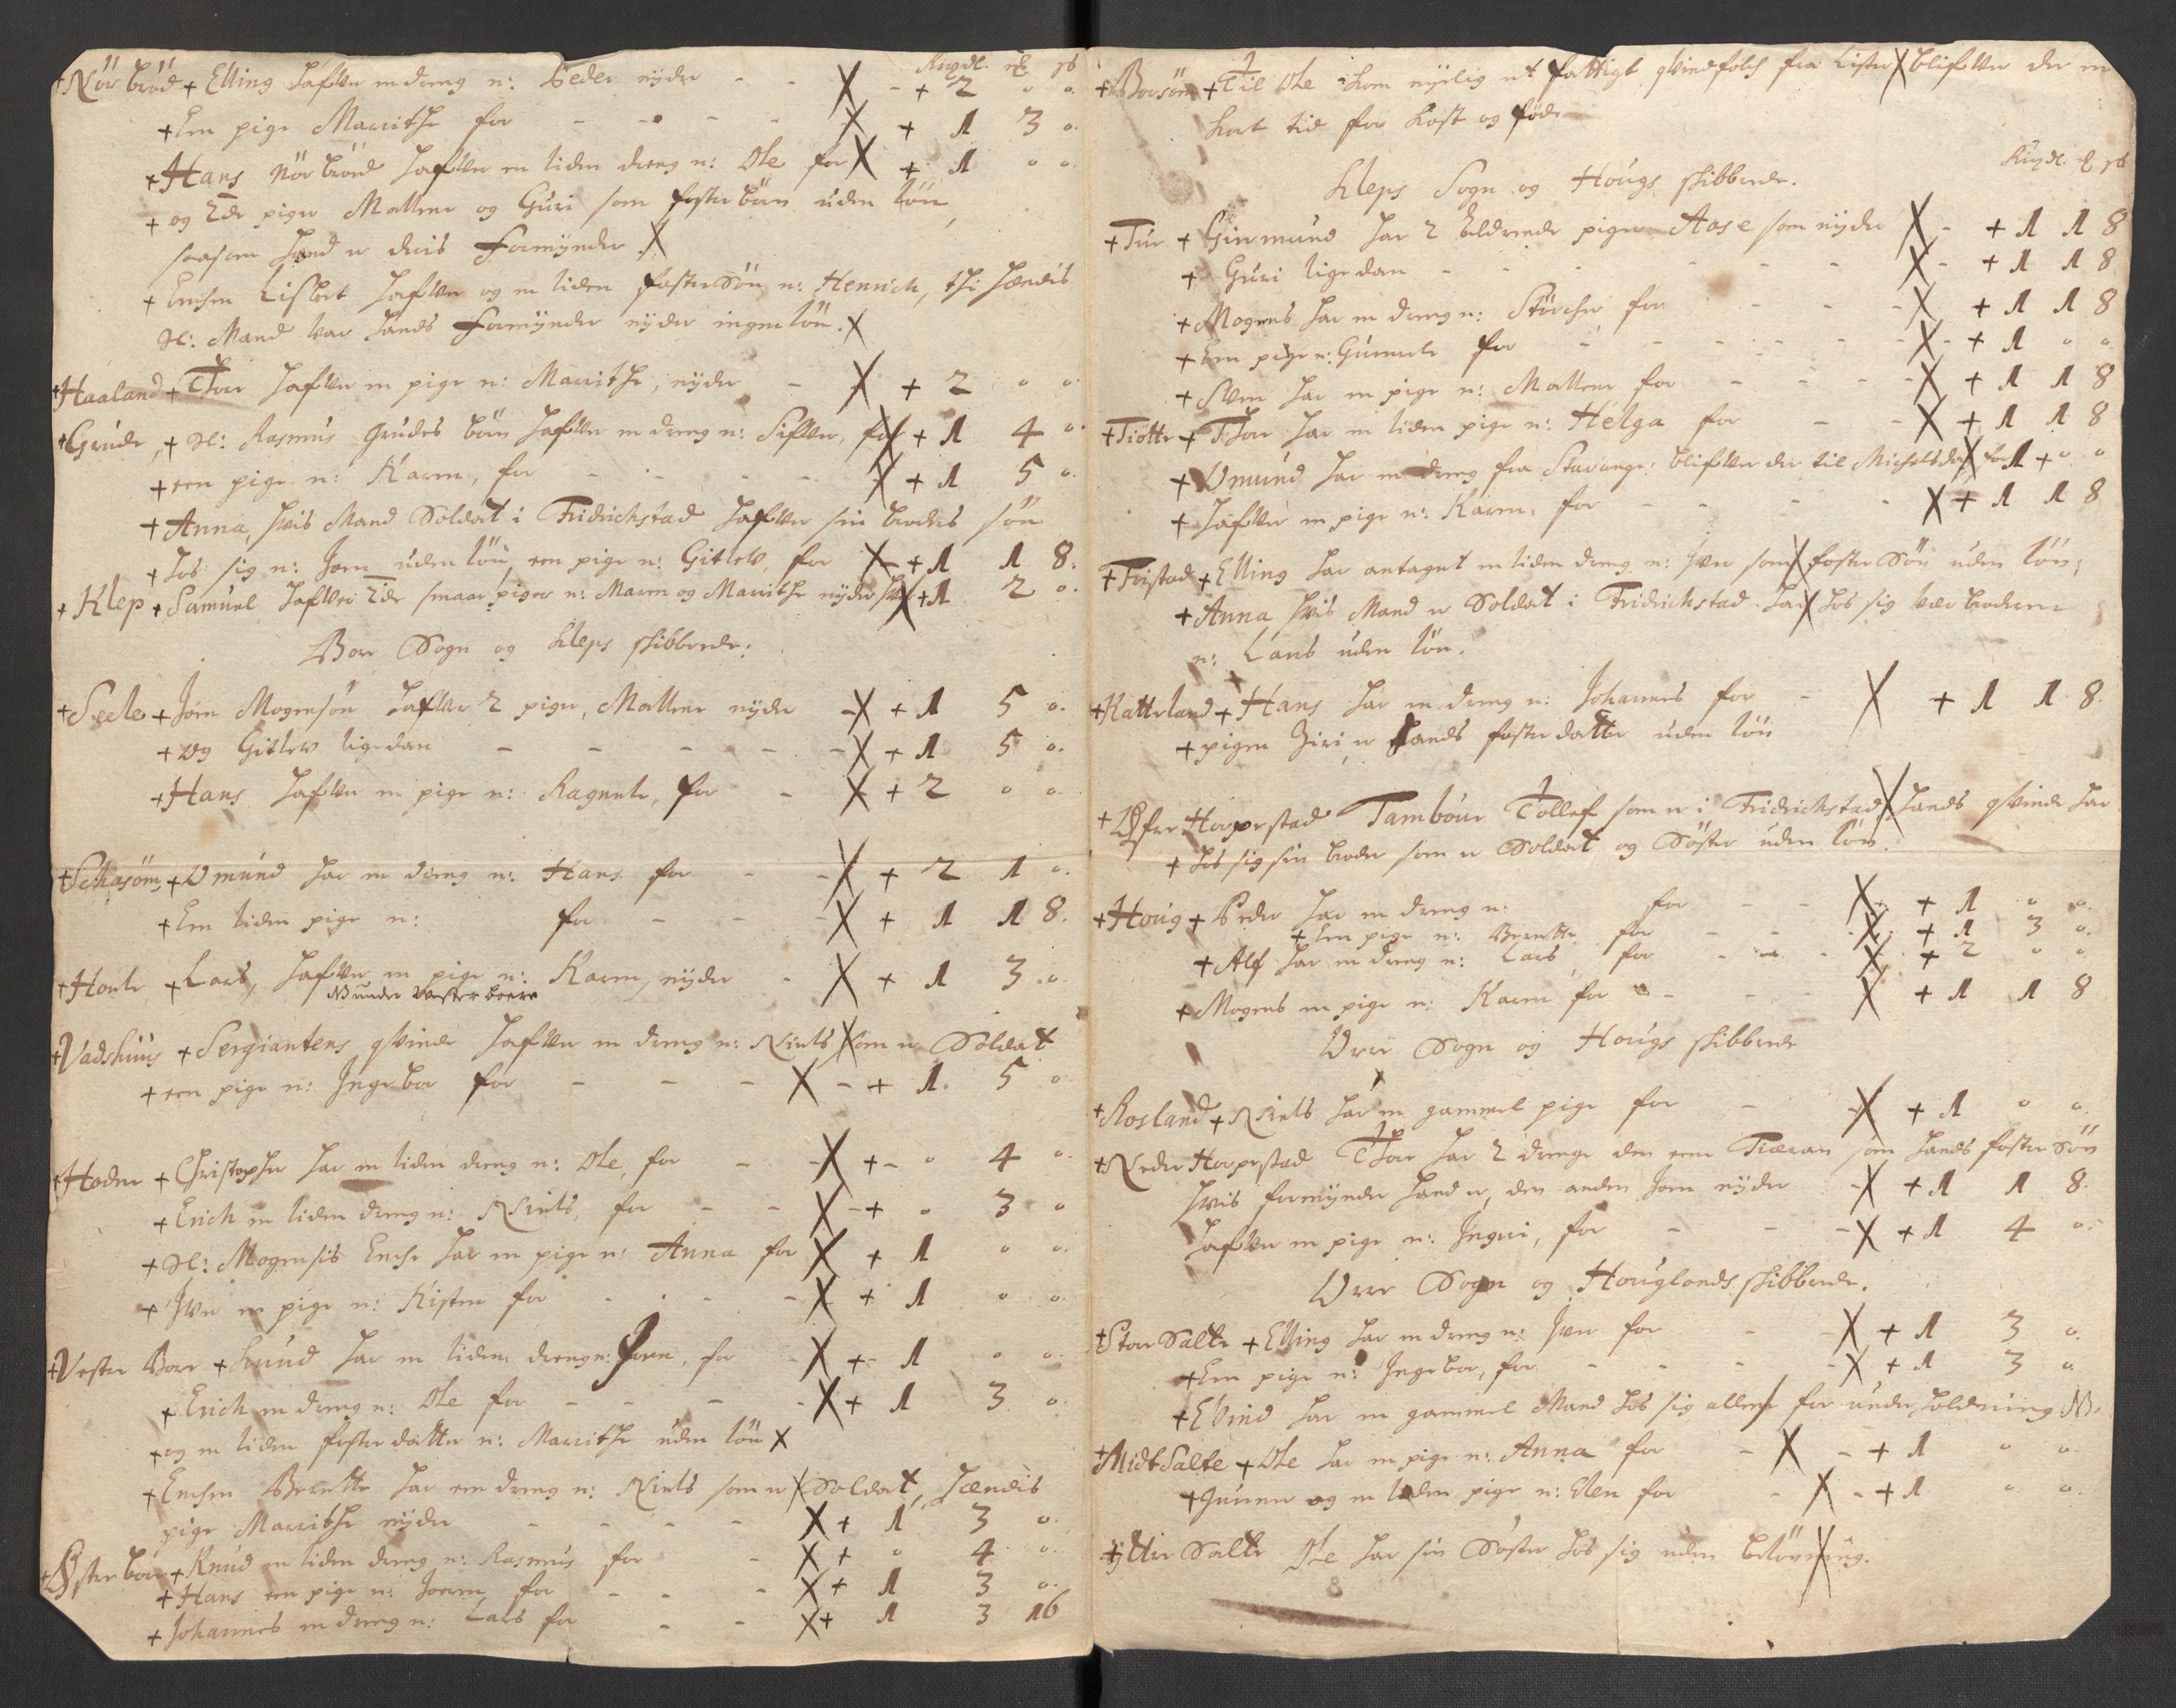 Rixdl. ℳ ß
+Nör bröd + Elling hafuer en dreng n: Peder nyder - - X - + 2 " "
+Een pige Marrithe for - - - - X + 1 3 "
+Hans Nör bröd hafuer en liden dreng n: Ole for X + 1 " "
+ og 2de piger Mallene og Guri som fosterbörn uden lön,
saasom hand er deris formynder X
+ Enchen Lisbet hafuer og en liden fostersön n: Henrich, thi hendis
Sl: Mand var hands formynder nyder ingen lön. X
+Haaland + Thore hafuer en pige n: Marrithe, nyder - X + 2 " "
+Grude, + Sl: Rasmus Grudes börn hafuer en dreng n: Sifuer, for X + 1 4 "
+ een pige n: Karen, for - - - - X + 1 5 "
+ Anna, hvis Mand Soldat i Fridrichstad hafuer sin broders sön
+ hos sig n: Jorn uden lön, een pige n: Gitlow, for X + 1 1 8.
+ Klep + Samuel hafuer 2de smaa piger n: Maren og Marrithe nyder X + 1 2 "
Bore Sogn og Kleps skibbrede:
+Seele + Jörn Mogensön hafuer 2 piger, Mallene nyder - X + 1 5 "
+ og Gitlow ligedan - - - - - X + 1 5 "
+Hans hafuer en pige n: Ragnele, for - X + 2 " "
+Schasöm, + Omund har en dreng n: Hans for - - X + 2 1 "
+ Een liden pige n: for - - - X + 1 1 8.
+Hoele + Lars, hafuer en pige n: Karen, nyder - X + 1 3 "
NB under Vester boere
+Vadshuus + Sergiantens qvinde hafuer en dreng n: Niels X som er Soldat
+ een pige n: Ingebor for - - - X - + 1. 5 "
+Hodne + Christopher har en liden dreng n: Ole, for - - X + - " 4 "
+ Erich en liden dreng n: Niels, for - - X - + " 3 "
+ Sl: Mogensis Enche har en pige n: Anna for X + 1 " "
+ Iver en pige n: Kisten for - - - - X + 1 " "
+Vester Bore + Knud har en liden dreng n: Joren, for - X + - 1 " "
+ Erich en dreng n: Ole for - - - - X + 1 3 "
+ og en liden foster datter n: Marrithe uden lön X
+ Enchen Berette har een dreng n: Niels som er X Soldat, hendis
pige Marrithe nyder - - - - X + 1 3 "
+Öster bore + Knud en liden dreng n: Rasmus for - X + " 4 "
+ Hans een pige n: Joren, for - - X + 1 3 "
+ Johannes en dreng n: Lars for - - X + 1 3 16
+Borsöm + Til Ole kom nylig et fattigt qvindfolch fra Lister X blifuer der en
kort tid for kost og föde
Kleps Sogn og Hougs skibbrede.
Rixdl. ℳ ß
+Tur + Giermund har 2 Eldrende piger Aase som nyder X - + 1 1 8
+ Guri ligedan - - - - - X - + 1 1 8
+ Mogens har en dreng n: Störcher for - - X + 1 1 8
+ Een pige n: Gunnele for - - - - X - + 1 " "
+ Sven har en pige n: Mallene for - - - - X + 1 1 8
+Tiötte + Thore har en liden pige n: Helga for - - X + 1 1 8
+ Omund har en dreng fra Stavanger, blifuer der til Michelsdag X for 1 + " "
+ hafuer en pige n: Karen, for - - - - X + 1 1 8
+Tristad + Elling har antaget en liden dreng n: Iver som X foster Sön uden lön,
+ Anna hvis Mand er Soldat i Fridrichstad har X hos sig hver broderen
n: Lars uden lön.
+Katteland + Hans har en dreng n: Johannes for - X + 1 1 8.
+ pigen Giri, er hands foster datter uden lön
+ Öfre Horpestad Tambour Tollef som er i Fridrichstad X hands qvinde har
+ hos sig sin broder som er Soldat og Söster uden lön.
+Houg + Peder har en dreng n: for - - X + 1 " "
+ Een pige n: Berette for - - - X + 1 3 "
+ Alf har en dreng n: Lars, for - - - X + 2 " "
+ Mogens en pige n: Karen for - - - X + 1 1 8
Orre Sogn og Hougs skibbrede
+Rosland + Niels har en gammel pige for - - X + 1 " "
+Neder Horpestad Thore har 2 drenge den eene Tiæran som hands foster Sön
hvis formynder hand er, den anden Jorn nyder - X + 1 1 8.
hafuer en pige n: Ingeri, for - - - X + 1 4 "
Orre Sogn og Houglands skibbrede.
+Store Salte + Elling har en dreng n: Iver for - - X + 1 3 "
+ Een pige n: Ingebor, for - - - - X + 1 3 "
+ Eivind har en gammel Mand hos sig allene for underholdning NB.
+Midt Salte + Ole har en pige n: Anna for - X - + 1 " "
+ Gunner og en liden pige n: Elen for - X - + 1 " "
+ ytter Salte Ole har sin Söster hos sig uden belönning.